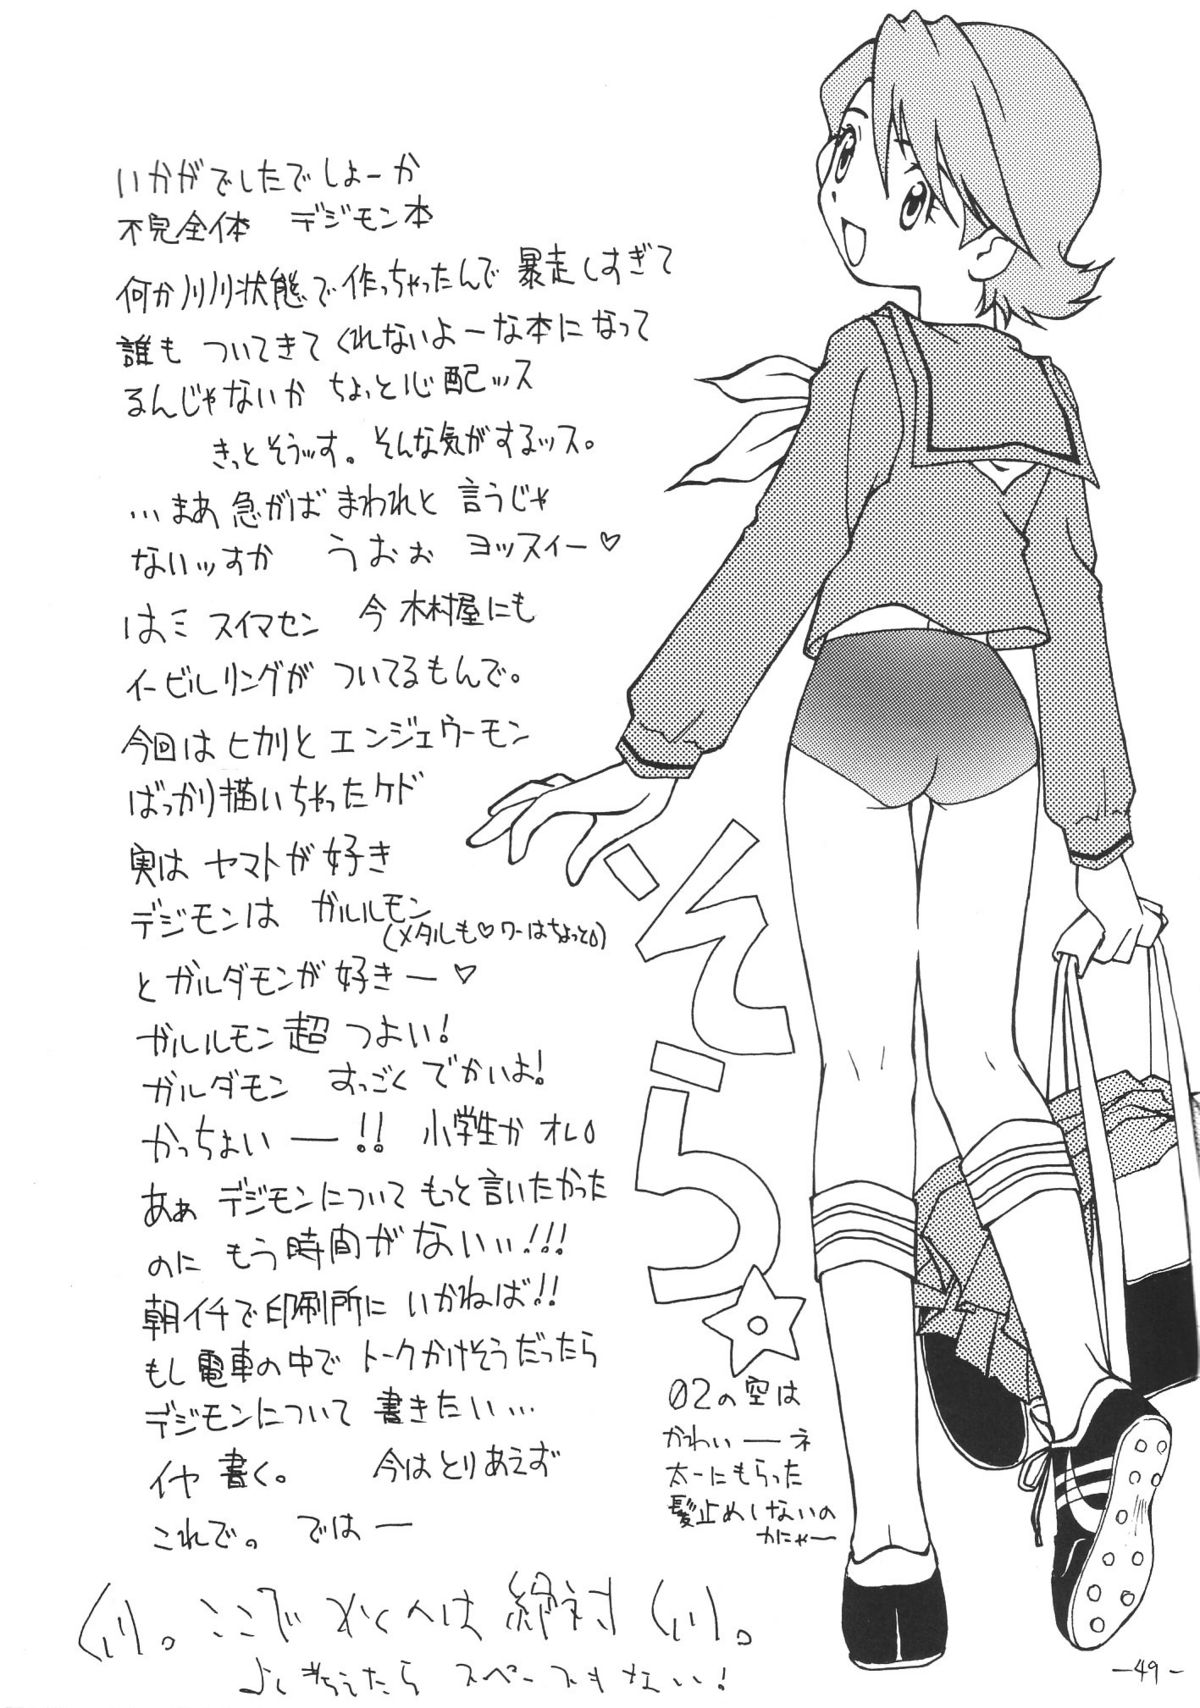 いかがでしたでしょーか
不完全体 デジモン本
何かハハハ状態で作っちゃったんで 暴走しすぎて
誰も ついてきて くれないよーな本になって
るんじゃないか ちょっと心配ッス
きっとそうッす。そんな気がするッス。
…まあ 急がば まわれと 言うじゃ
ないッすか うおぉ ヨッスィー♡
はミ スイマセン 今 木村屋にも
イービルリングが ついてるもんで。
今回は ヒカリと エンジェウーモン
ばっかり描いちゃったケド
実は ヤマトが好き
デジモンは ガルルモン
(メタルも♡ワーはちょっと)
とガルダモンが好きー♡
ガルルモン 超 つよい!
ガルダモン すっごく でかいよ!
かっちょいー!! 小学生か オレ
あぁ デジモンについて もっと言いたかった
のに もう 時間が ないぃ!!!
朝イチで印刷所に いかねば!!
もし 電車の中で トークかけそうだったら
デジモンについて 書きたい…
イヤ 書く。 今は とりあえず
これで。 ではー
ここで 絶対
よく考えたら スペースもない!
そら
02の空は
かわいーネ
太一にもらった
髪止めしないの
かにゃー
-49-